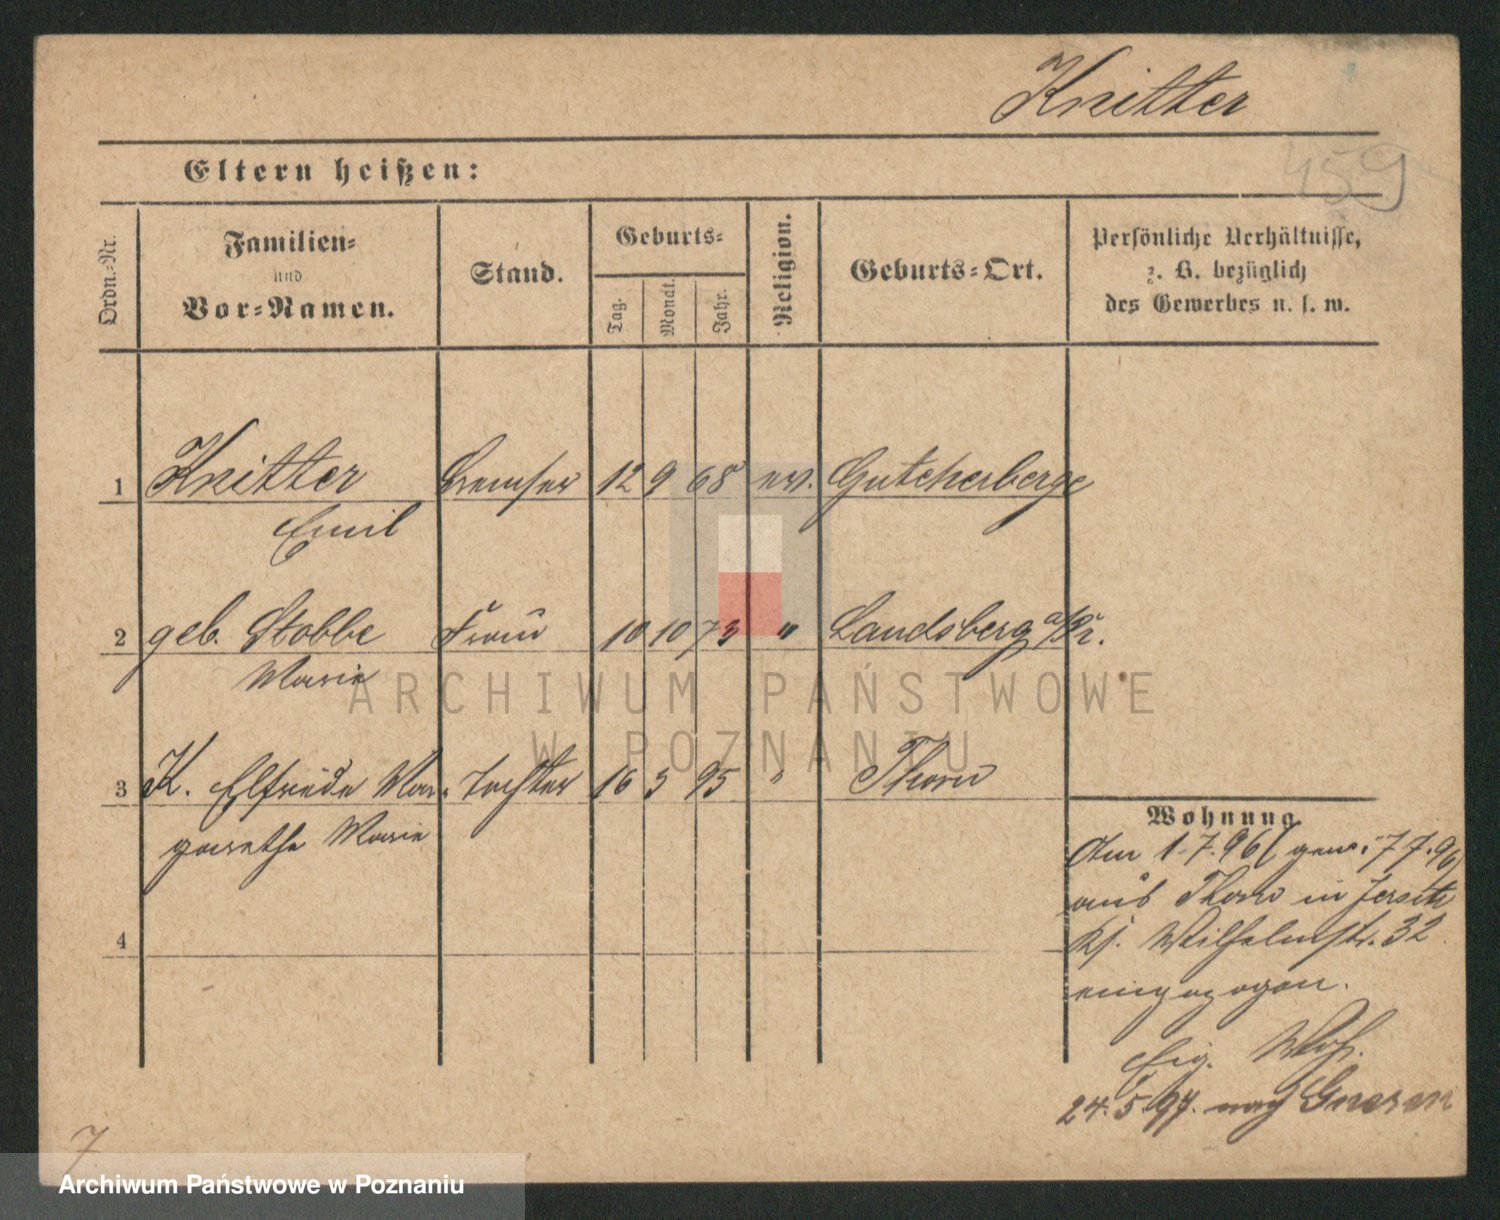 Knitter
459
Eltern heißen:
Ordn.-Nr.
Familien-
und
Vor-Namen.
Stand.
Geburts-
Tag.
Monat.
Jahr.
Religion.
Geburts-Ort.
Persönliche Verhältnisse,
z. B. bezüglich
des Gewerbes u. s. w.
1 Knitter Bremser 12 9 68 ev. Gutcherberge
Emil
2 geb. Stobbe Frau 10 10 73 " Landsberg a/Pr.
Marie
3 K. Elfriede Mar- Tochter 16 5 95 " Thorn
garethe Marie
4
Wohnung.
Am 1.7.96 (gem. 7.7.96)
aus Thorn in Jersitz
Wilhelmstr. 32
eingezogen.
Eig. Woh.
24.5.97. nach Gnesen
7
ARCHIWUM PAŃSTWOWE
W POZNANIU
Archiwum Państwowe w Poznaniu